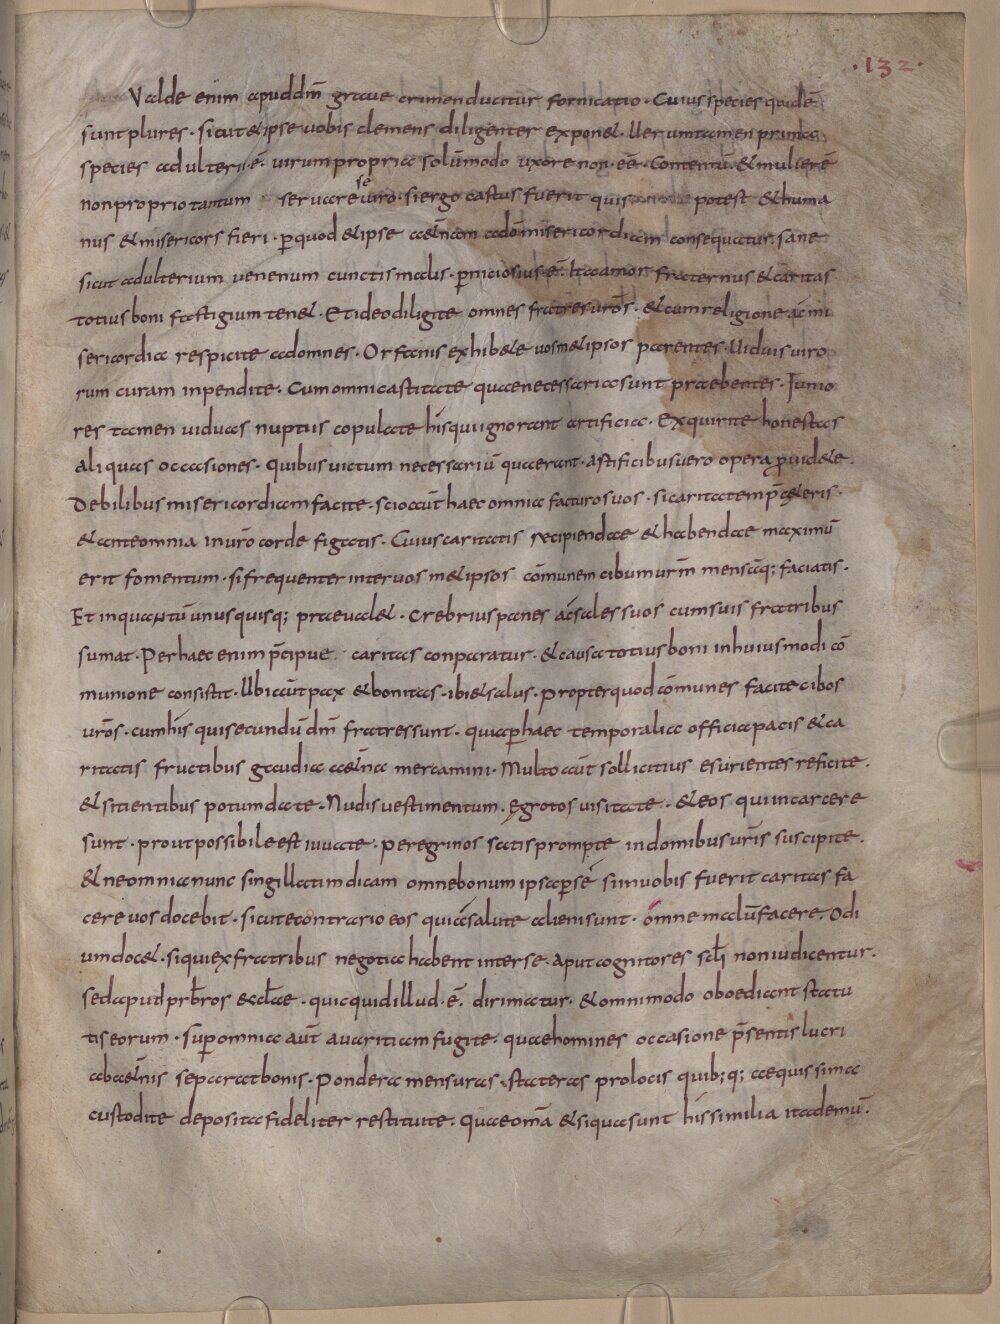 ·132·
Valde enim apud dm̄ graue crimen ducitur fornicatio. Cuius species quidē
sunt plures. sicut & ipse uobis clemens diligenter expon&. Uerumtamen prima
species adulterii. ē. uirum propria solū modo uxore non. eē. Contentū. & muliere͞
non proprio tantum seruare se uiro. si ergo castus fuerit quis potest & huma
nus & misericors fieri. ꝑ quod & ipse a&̄nam ad dōm misericordiam consequatur. sane
sicut adulterium uenenum cunctis malis. ꝑniciosius. ē. Ita amor fraternus & caritas
totius boni fastigium ten&. Et ideo diligite omnes fratres uros̄. & cum religione ac mi
sericordia respicite ad omnes. Orfanis exhib&e uosm&ipsos parentes. Uiduis uiro
rum curam inpendite. Cum omni castitate quae necessaria sunt praebentes. Iunio
res tamen uiduas nuptiis copulate his qui ignorant artificia. Exquirite honestas
aliquas occasiones. quibus uictum necessariū quaerant. astificibus uero opera ꝓuid&e.
Debilibus misericordiam facite. scio aūt haec omnia facturos uos. si caritatem p̄ c&eris.
& ante omnia in uro̅ corde figatis. Cuius caritatis recipiendae & habendae maximū
erit fomentum. si frequenter inter uos m&ipsos cōmunem cibum urm̄ mensāq; faciatis.
Et in quantū unusquisq; praeual&. crebrius panes ac̄ sales suos cum suis fratribus
sumat. Per haec enim p̄cipue caritas conparatur. & causa totius boni in huiusmodi cō
munione consistit. Ubi aūt pax & bonitas. ibi & salus. propter quod cōmunes facite cibos
uros̄. cum his qui secundū dm̄ fratres sunt. quia ꝑ haec temporalia officia pacis & ca
ritatis fructibus gaudia a&̄na mercamini. Multo aūt sollicitius esurientes reficite.
& sitientibus potum date. Nudis uestimentum. ęgrotos uisitate. & eos qui in carcere
sunt. prout possibile est iuuate. peregrinos satis prompte in domibus uris̄ suscipite.
& ne omnia nunc singillatim dicam omne bonum ipsa ꝑ se si in uobis fuerit caritas fa
cere uos docebit. sicut e contrario eos qui a salute alieni sunt. omne malū facere. Odi
um doc&. si qui ex fratribus negotia habent inter se. aput cognitores scl̄i non iudicentur.
sed apud prb̄ros eccl̄ae. quicquid illud. ē. dirimatur. & omnimodo oboediant statu
tis eorum. suꝑ omnia aūt auaritiam fugite. quae homines occasione p̄sentis lucri
ab a&̄nis separat bonis. Pondera mensuras. stateras pro locis quib;q; aequissima
custodite deposita fideliter restituite. Quae om̄a & si qua sunt his similia ita demū.